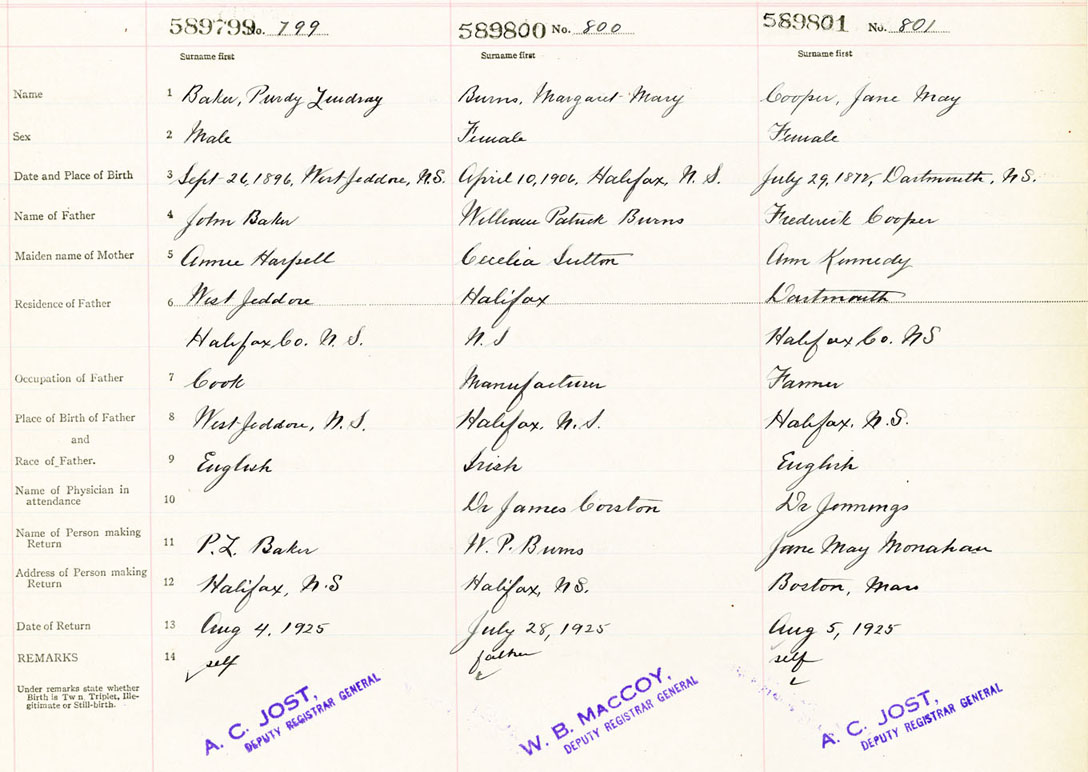 589799 No. 799
589800 No. 800
589801 No. 801
Surname first Surname first Surname first
Name 1 Baker, Purdy Lindsay Burns, Margaret Mary Cooper, Jane May
Sex 2 Male Female Female
Date and Place of Birth 3 Sept 26, 1896, West Jeddore, N.S. April 10, 1906, Halifax, N.S. July 29, 1872, Dartmouth, N.S.
Name of Father 4 John Baker William Patrick Burns Frederick Cooper
Maiden name of Mother 5 Annie Harpell Cecelia Sutton Ann Kennedy
Residence of Father 6 West Jeddore Halifax Dartmouth
Halifax Co. N.S. N.S Halifax Co. NS
Occupation of Father 7 Cook Manufacturer Farmer
Place of Birth of Father 8 West Jeddore, N.S. Halifax, N.S. Halifax, N.S.
and
Race of Father. 9 English Irish English
Name of Physician in
attendance 10 Dr James Corston Dr Jennings
Name of Person making
Return 11 P.L. Baker W.P. Burns Jane May Monahan
Address of Person making
Return 12 Halifax, N.S Halifax, NS. Boston, Mass
Date of Return 13 Aug 4, 1925 July 28, 1925 Aug 5, 1925
REMARKS 14 self father self
Under remarks state whether
Birth is Twin, Triplet, Ille-
gitimate or Still-birth.
A. C. JOST,
DEPUTY REGISTRAR GENERAL
W. B. MACCOY,
DEPUTY REGISTRAR GENERAL
A. C. JOST,
DEPUTY REGISTRAR GENERAL